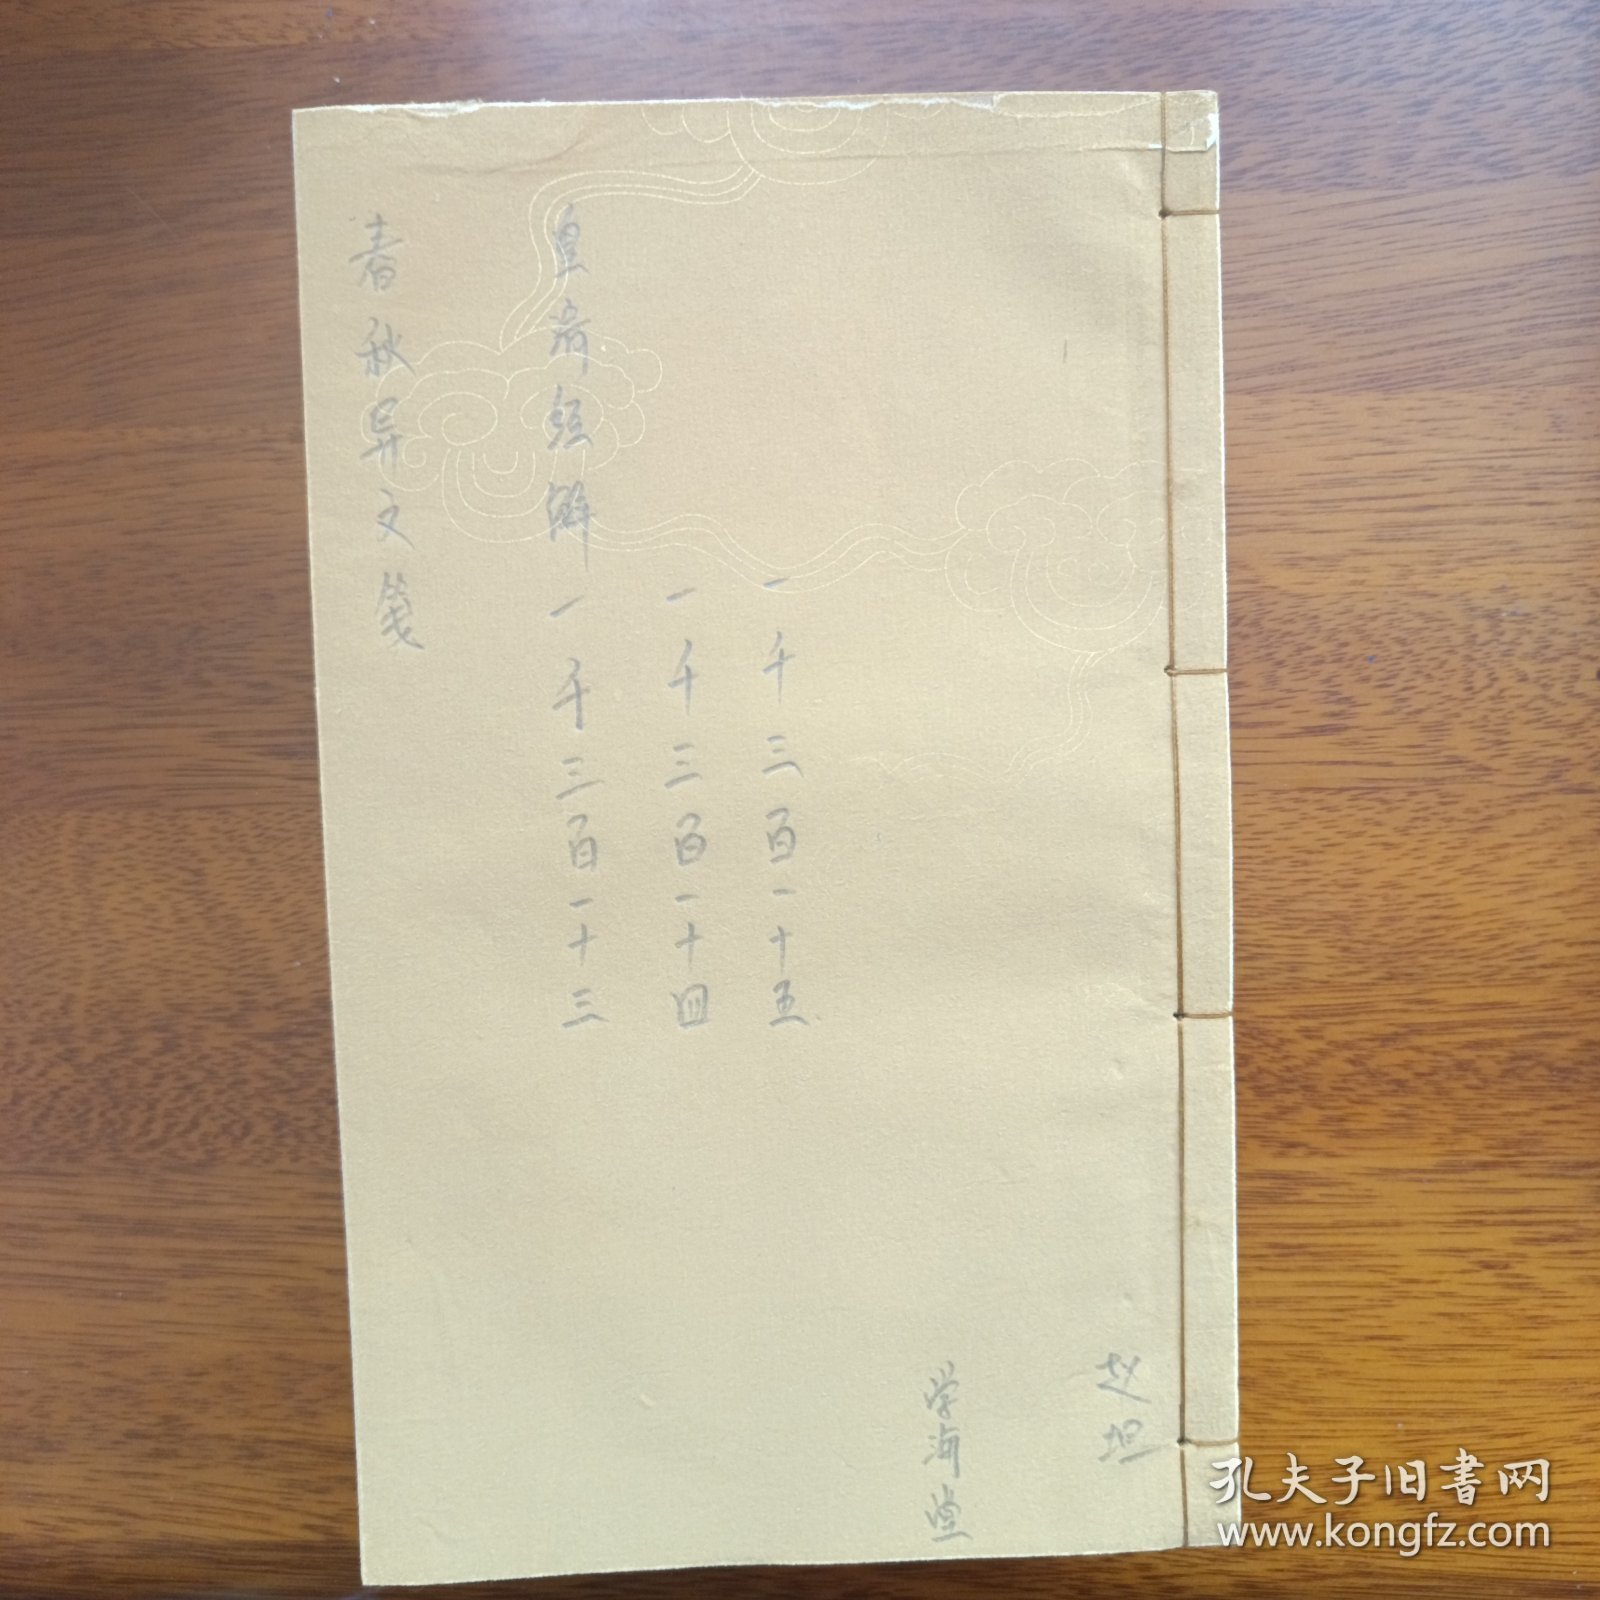 赵坦
学海堂
一千三百一十五
一千三百一十四
皇清经解一千三百一十三
春秋异文笺
孔夫子旧书网
www.kongfz.com